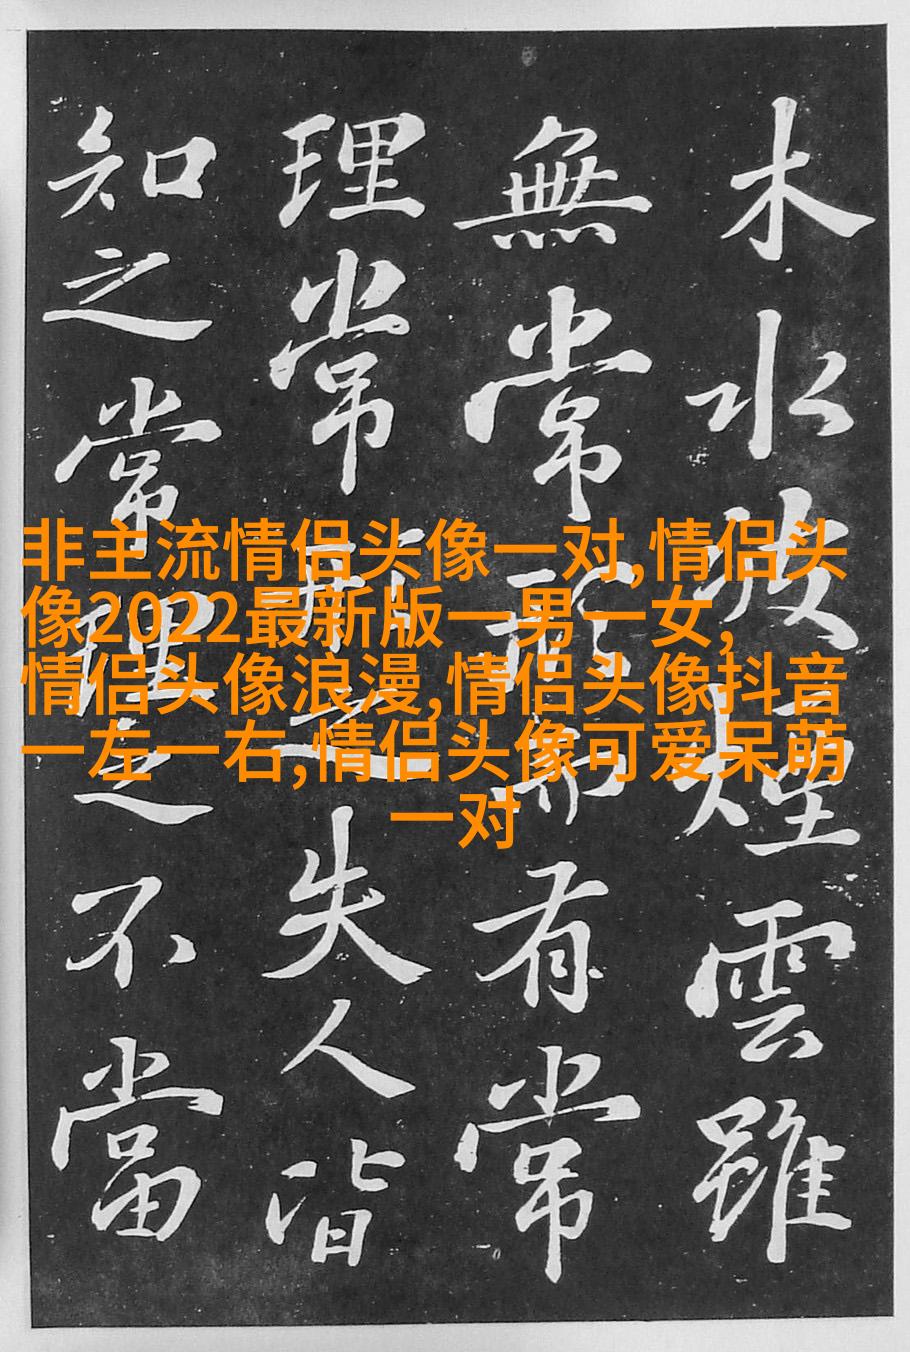 木水波煙雲雖
無常形而有常
理常形之失人皆
知之常理之不當
非主流情侣头像一对,情侣头
像2022最新版一男一女,
情侣头像浪漫,情侣头像抖音
一左一右,情侣头像可爱呆萌
一对